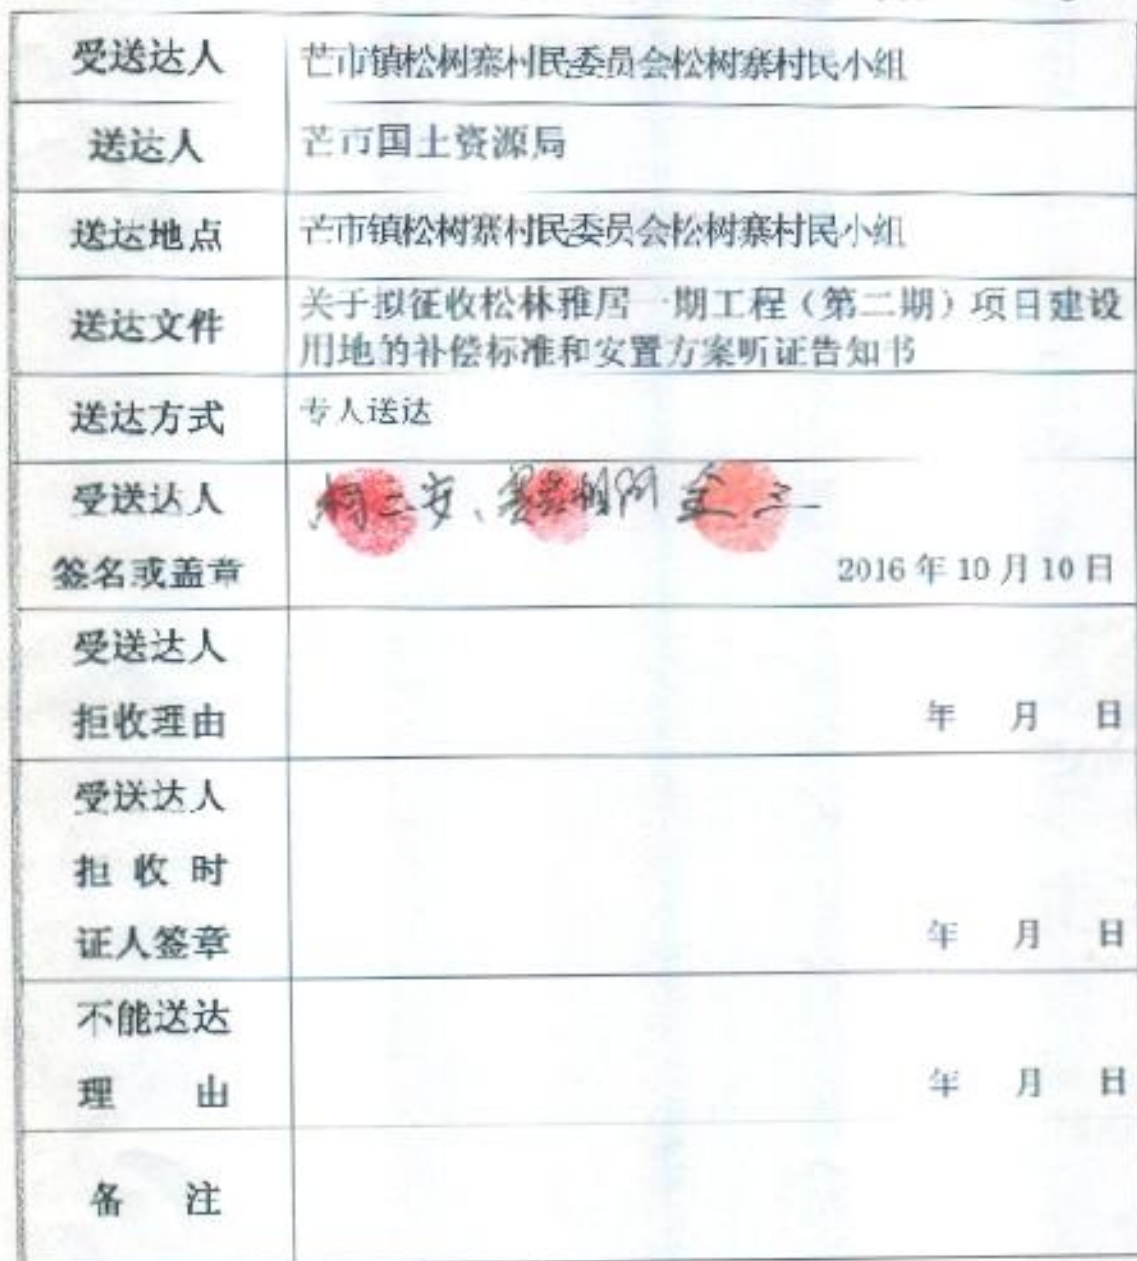 受送达人 芒市镇松树寨村民委员会松树寨村民小组
送达人 芒市国土资源局
送达地点 芒市镇松树寨村民委员会松树寨村民小组
送达文件 关于拟征收松林雅居一期工程（第二期）项目建设
用地的补偿标准和安置方案听证告知书
送达方式 专人送达
受送达人
签名或盖章 2016年10月10日
受送达人
拒收理由 年 月 日
受送达人
拒收时
证人签章 年 月 日
不能送达
理 由 年 月 日
备 注